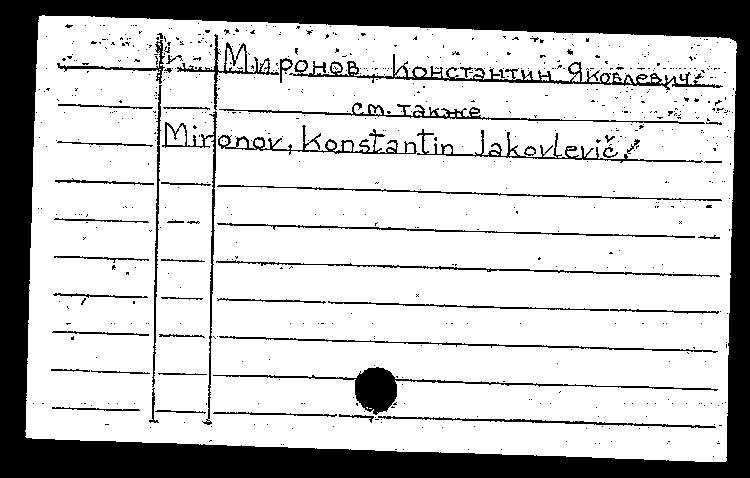 Миронов, Константин Яковлевич.
см. также
Mironov, Konstantin Jakovlevič.